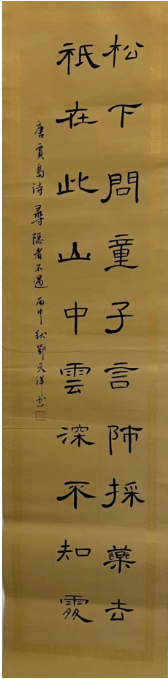 松下問童子言師採藥去
祇在此山中雲深不知處
唐賈島詩尋隱者不遇丙申秋鄧天祥書